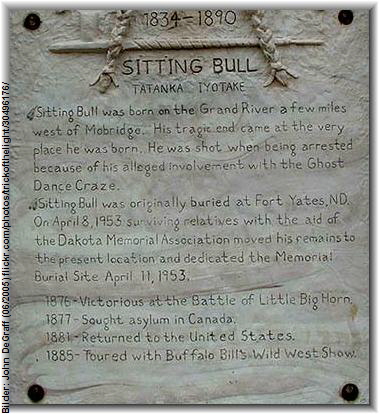 1834-1890
SITTING BULL
TATANKA IYOTAKE
Sitting Bull was born on the Grand River a few miles
west of Mobridge. His tragic end came at the very
place he was born. He was shot when being arrested
because of his alleged involvement with the Ghost
Dance Craze.
Sitting Bull was originally buried at Fort Yates, ND.
On April 8, 1953 surviving relatives with the aid of
the Dakota Memorial Association moved his remains to
the present location and dedicated the Memorial
Burial Site April 11, 1953.
1876-Victorious at the Battle of Little Big Horn.
1877-Sought asylum in Canada.
1881-Returned to the United States.
1885-Toured with Buffalo Bill's Wild West Show.
Bilder: John DeGraff (06/2005) flickr.com/photos/trickofthelight/30496176/